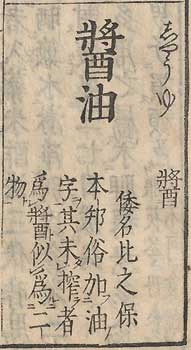 志やうゆ
醬
醬油
倭名比之保
本邦俗加油
字其未搾者
爲醬似爲二
物